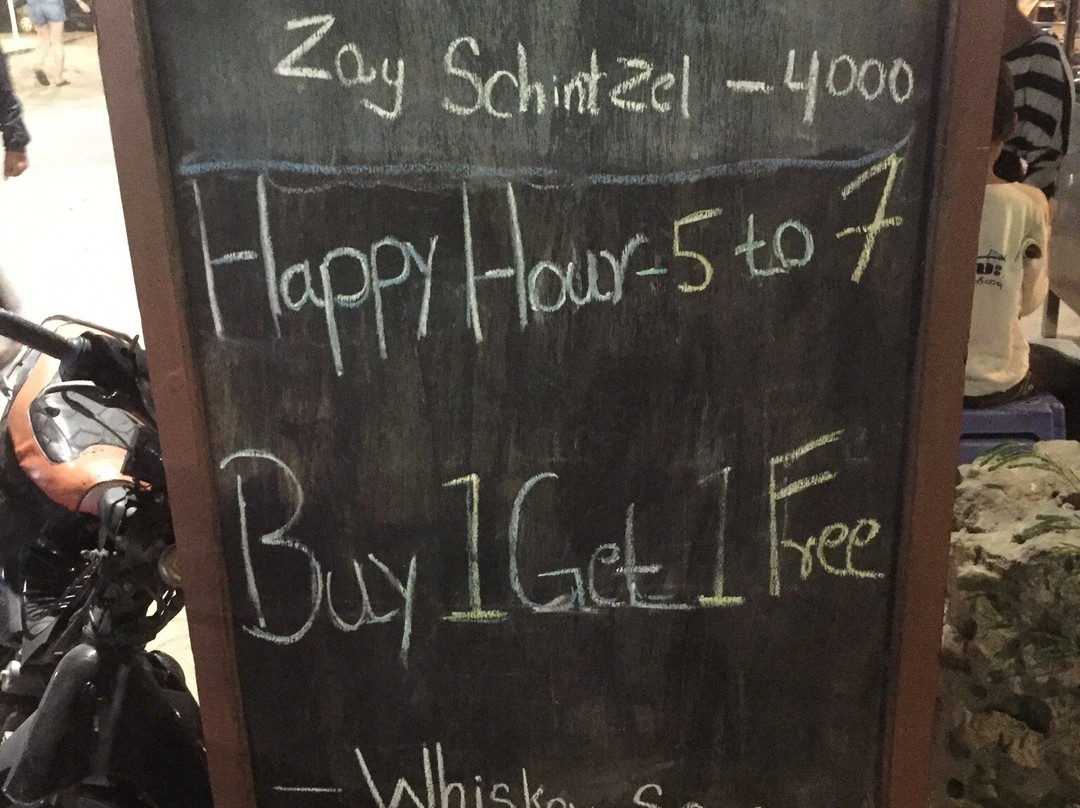 Zay Schintzel - 4000
Happy Hour - 5 to 7
Buy 1 Get 1 Free
- Whiskey